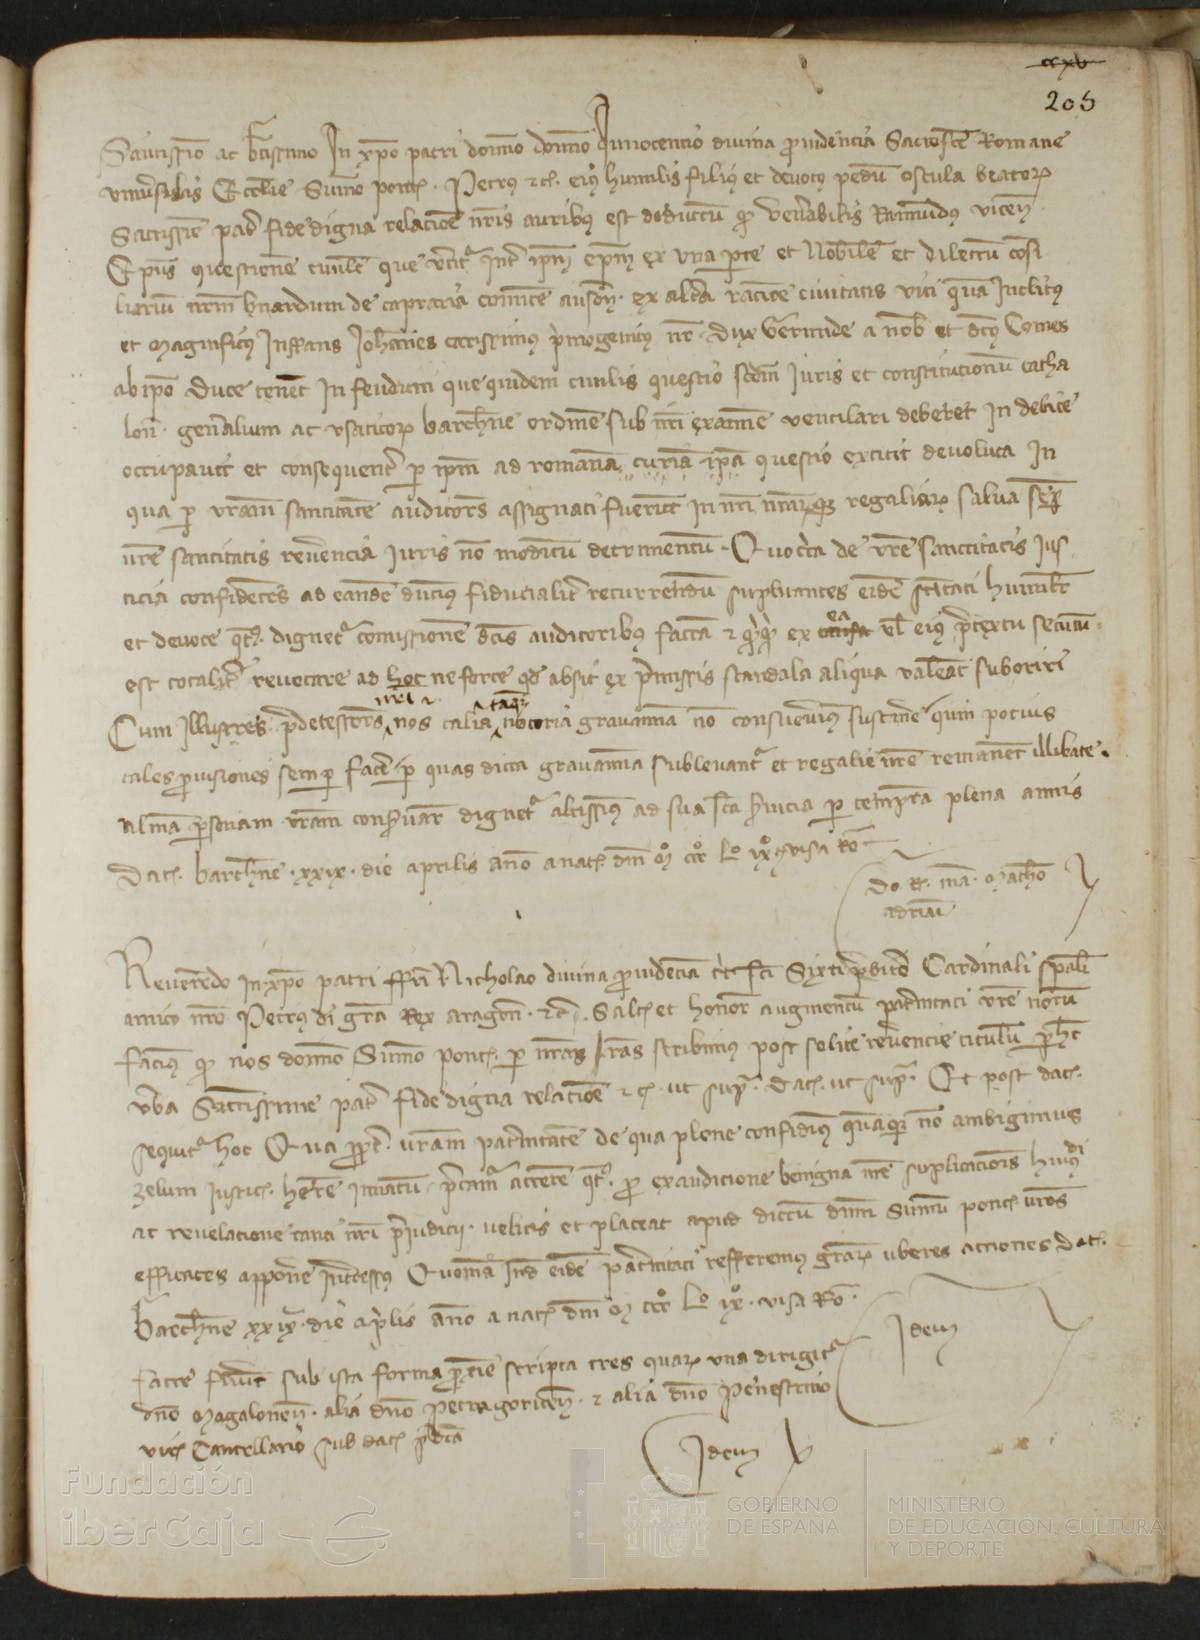 ccxv
205
Sanctissimo ac btissimo In xpo patri domino domino Innocentio divina providencia Sacrosce Romane
universalis Ecclie Summo pontⁱ. Petrus etc. eius humilis filius et devotus pedum oscula beatorum
Sanctissime pater fide digna relacione nris auribus est deductum quod venerabilis Raimundus vicen
Epus questionem civilem que vertitur inter ipm epm ex una parte et Nobilem et dilectum consi
liarium nrm bnardum de capraria comitem ausone ex altera racione civitatis vici quam Inclitus
et magnificus Inffans Johannes carissimus primogenitus nr Dux Gerunde a nob et dictus Comes
ab ipo Duce tenent In feudum que quidem civilis questio scdm Juris et constitucionum catha
lon generalium ac usaticorum barchne ordinem sub nri examine ventilari deberet In debite
occupavit et consequenter per ipm ad romanam curiam ipa questio extitit devoluta In
qua per vram sanctitatem auditores assignati fuerunt In nri nrarumque regaliarum salva semper
vre sanctitatis reverencia iuris non modicum detrimentum. Quocirca de vre sanctitatis Jus
ticia confidentes ad eandem ducimus fiducialiter recurrendum supplicantes eidem sctitati humilit
et devote quatⁱ dignetur comissionem dictis auditoribus factam et quicquid ex causa ea vel eius pretextu secutum
est totaliter revocare ad hoc ne forte quod absit ex premissis scandala aliqua valeant suboriri
Cum Illustres predecessores nri et nos talia tamque notoria gravamina non consuevimus sustinere quin potius
tales provisiones semper facere per quas dicta gravamina sublevantur et regalie nre remanent illibate.
Almam personam vram conservare dignetur altissimus ad sua sca servicia per tempora plena annis
Datⁱ. barchne. xxix. die aprilis anno a natⁱ dni M CCC Lº ixº. visa Ro
Do R. ma. Matheo
adriani
Reverendo in xpo patri ffri Nicholao divina providencia titⁱ sci Sixti presbitero Cardinali spali
amico nro Petrus di gra Rex aragon. etc. Saltⁱ et honoris augmentum paternitati vre notum
facimus quod nos domino Summo pontⁱ. per nras lras scribimus post solite reverencie titulum per hec
verba Sanctissime pater fide digna relacione etc. ut supra. Datⁱ. ut supra. Et post datⁱ.
sequitur hoc Qua propter vram paternitatem de qua plene confidimus quamque non ambigimus
zelum Justicⁱ. here innatum precamur attente quatⁱ. pro exaudicione benigna nre suplicacionis huiusdi
ac revelacione tanti nri preiudicii. velitis et placeat apud dictum dnm Summum pontⁱ. vros
efficaces apponere intercessus Quoniam Inde eidem paternitati refferemus grarum uberes acciones Datⁱ.
Barchne xxix. die aprilis anno a natⁱ dni M CCC Lº ixº. visa Ro.
Idem
facte fuerunt sub ista forma pertie scripta tres quarum una dirigitur
dno Magalonen. alia dno Petragoricen. et alia dno Penestrino
vicⁱ Cancellario sub datⁱ predicta
Idem
Fundación
iberCaja
GOBIERNO
DE ESPAÑA
MINISTERIO
DE EDUCACIÓN, CULTURA
Y DEPORTE